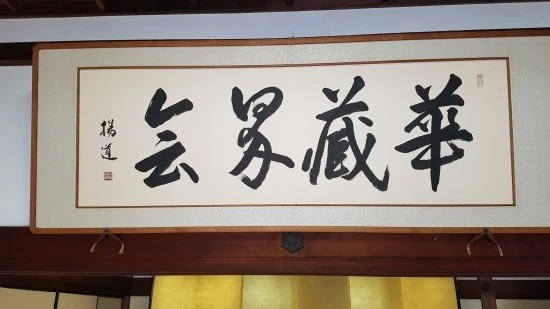 華蔵界会
揚道